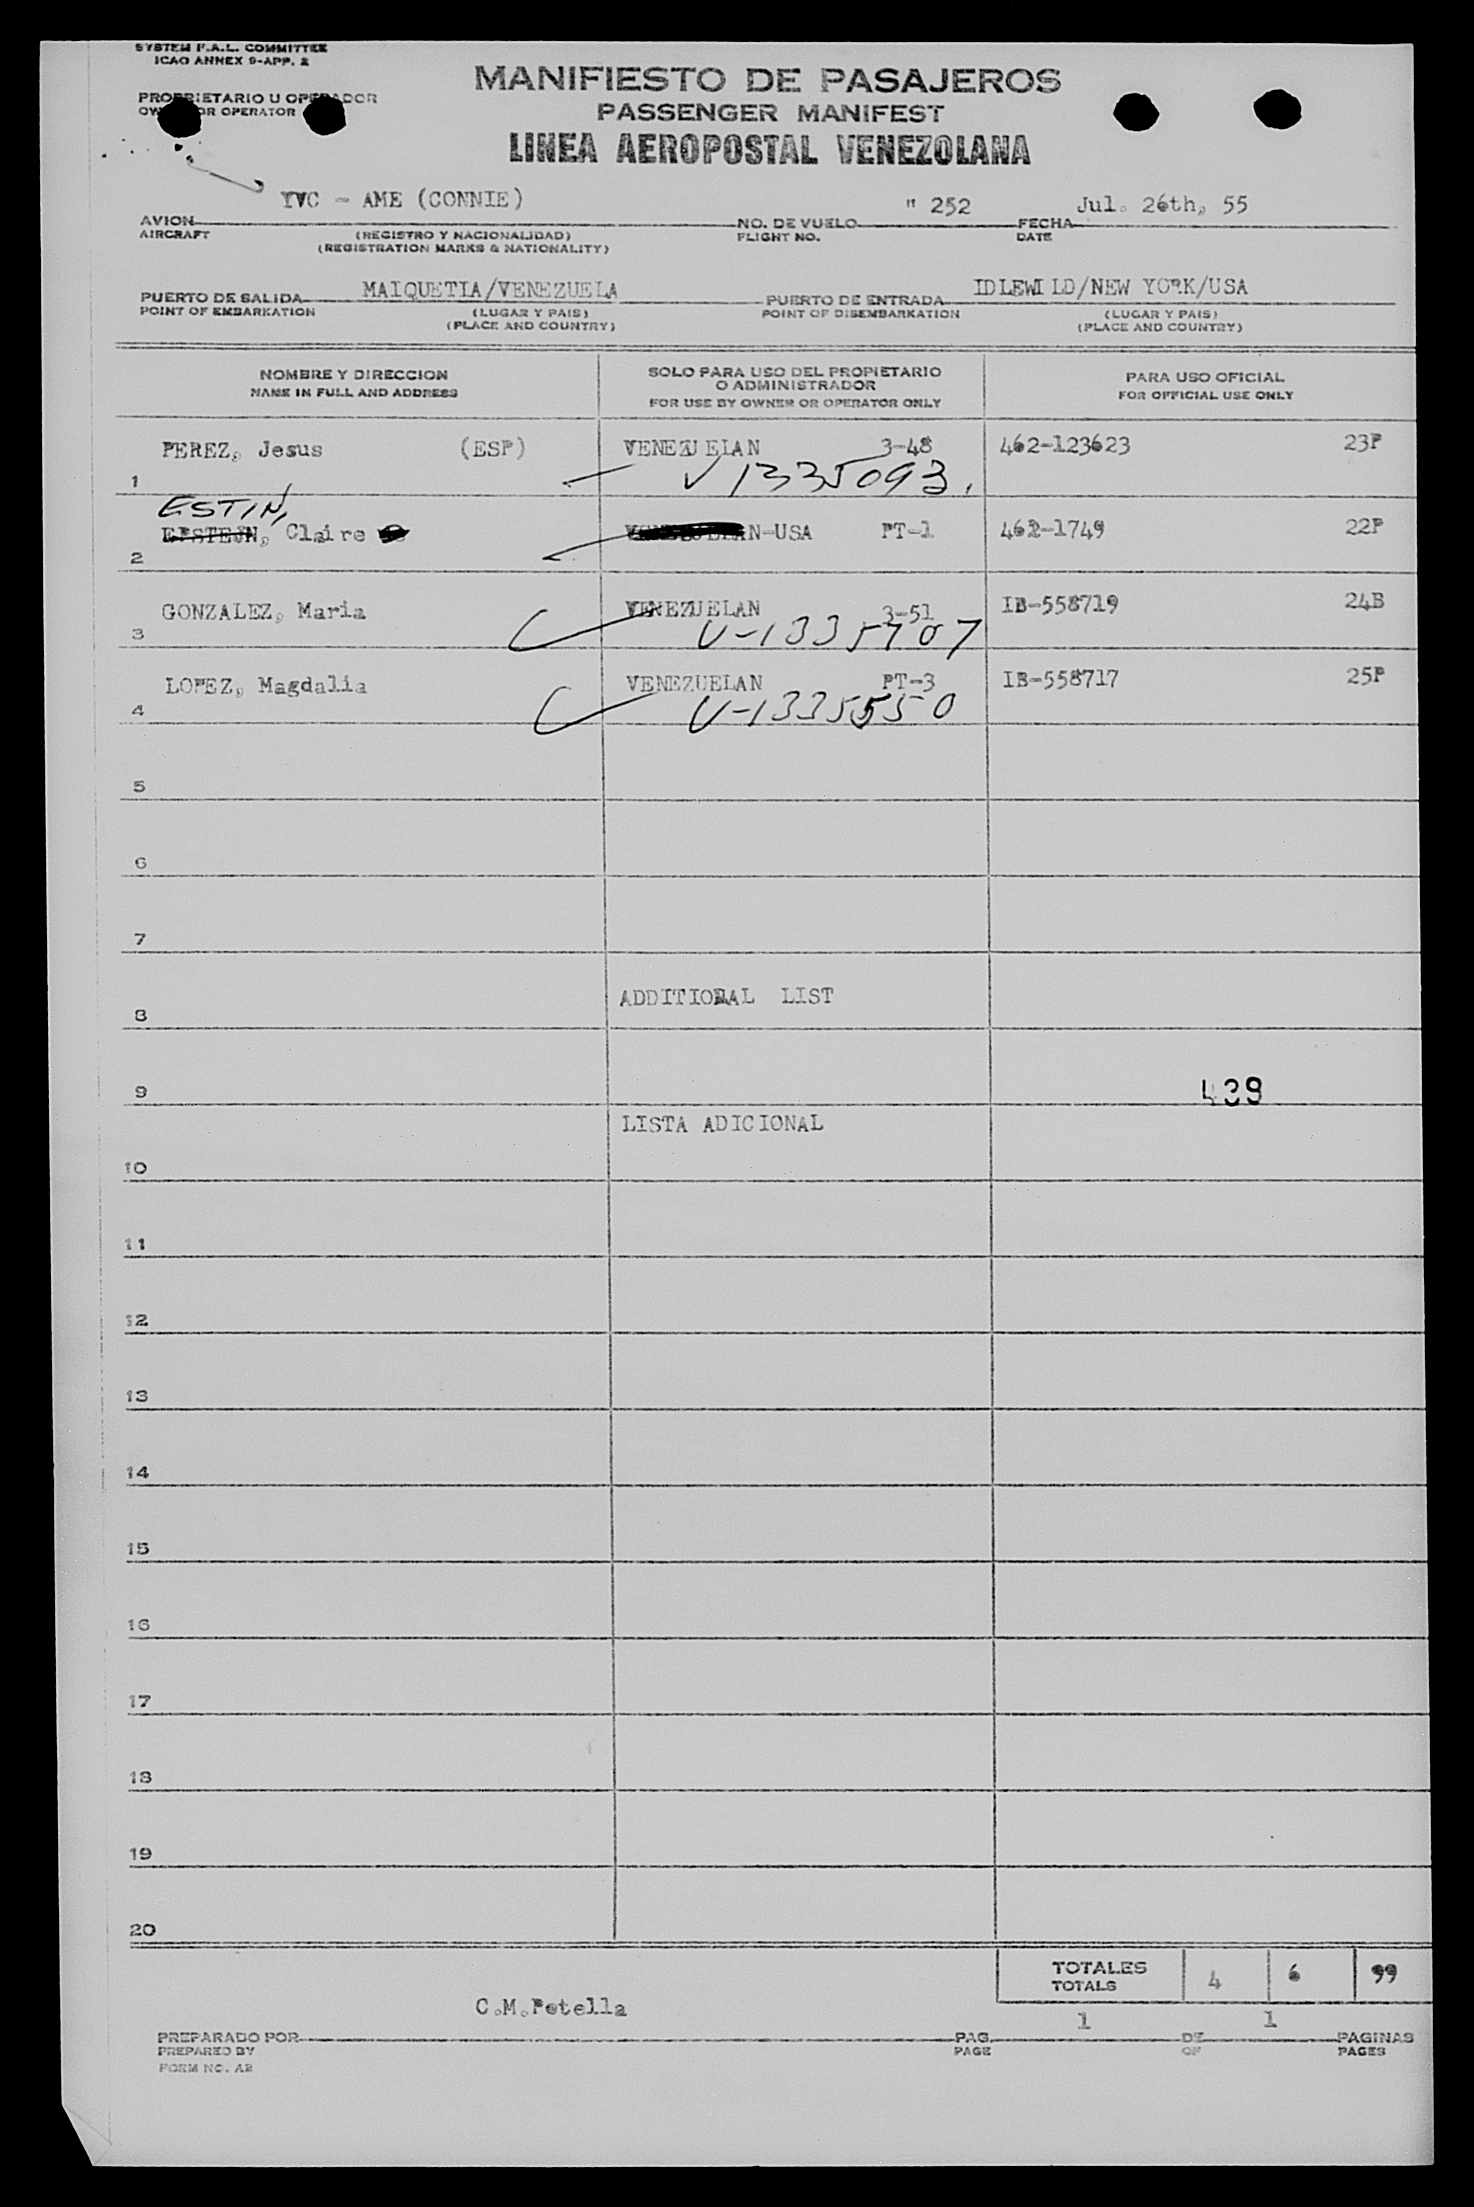 SYSTEM F.A.L. COMMITTEE
ICAO ANNEX 9-APP. 2
MANIFIESTO DE PASAJEROS
PROPRIETARIO U OPERADOR
OWNER OR OPERATOR
PASSENGER MANIFEST
LINEA AEROPOSTAL VENEZOLANA
YVC - AME (CONNIE) " 252 Jul. 26th, 55
AVION NO. DE VUELO FECHA
AIRCRAFT (REGISTRO Y NACIONALIDAD) FLIGHT NO. DATE
(REGISTRATION MARKS & NATIONALITY)
MAIQUETIA/VENEZUELA IDLEWILD/NEW YORK/USA
PUERTO DE SALIDA PUERTO DE ENTRADA
POINT OF EMBARKATION (LUGAR Y PAIS) POINT OF DISEMBARKATION (LUGAR Y PAIS)
(PLACE AND COUNTRY) (PLACE AND COUNTRY)
NOMBRE Y DIRECCION SOLO PARA USO DEL PROPIETARIO PARA USO OFICIAL
O ADMINISTRADOR
NAME IN FULL AND ADDRESS FOR USE BY OWNER OR OPERATOR ONLY FOR OFFICIAL USE ONLY
PEREZ, Jesus (ESP) VENEZUELAN 3-48 462-123623 23P
1 V 1335093.
ESTIN,
EPSTEIN, Claire VENEZUELAN-USA PT-1 462-1749 22P
2
GONZALEZ, Maria VENEZUELAN 3-51 IB-558719 24B
3 V-1335707
LOPEZ, Magdalia VENEZUELAN PT-3 IB-558717 25P
4 V-1335550
5
6
7
ADDITIONAL LIST
8
9 439
LISTA ADICIONAL
10
11
12
13
14
15
16
17
18
19
20
TOTALES 4 6 99
TOTALS
C.M.Potella 1 1
PREPARADO POR PAG. DE PAGINAS
PREPARED BY PAGE OF PAGES
FORM NO. A2